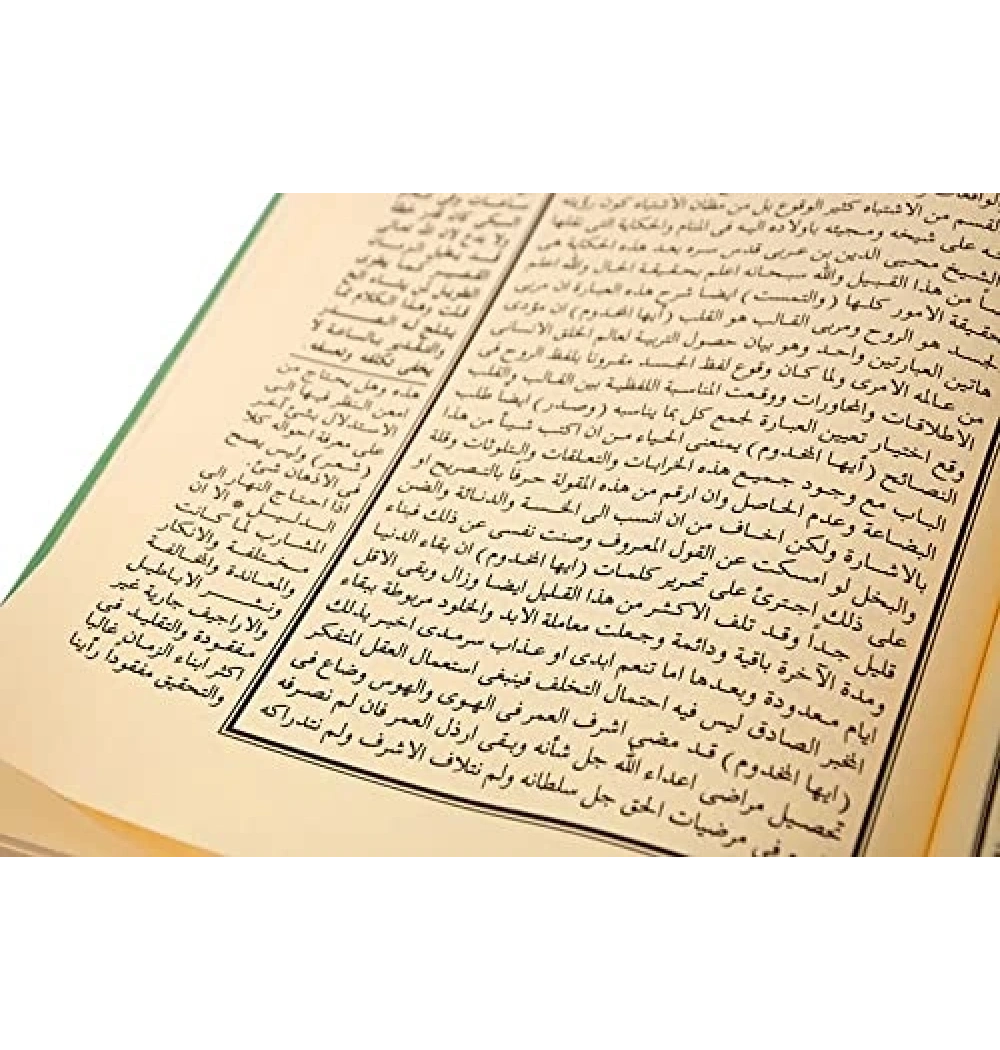 القسم من الاشتباه كثير الوقوع بل من مظان الاشتباه كون رؤيته
على شيخه ومجيئه باولاده اليه فى المنام والحكاية التى نقلها
الشيخ محيى الدين بن عربى قدس سره بعد هذه الحكاية هى
من هذا القبيل والله سبحانه اعلم بحقيقة الحال والله اعلم
حقيقة الامور كلها (والتمست) ايضا شرح هذه العبارة ان مربى
الجسد هو الروح ومربى القالب هو القلب (أيها المخدوم) ان مؤدى
هاتين العبارتين واحد وهو بيان حصول التربية لعالم الخلق الانسانى
من عالمه الامرى ولما كان وقوع لفظ الجسد مقرونا بلفظ الروح فى
الاطلاقات والمحاورات ووقعت المناسبة اللفظية بين القالب والقلب
وقع اختيار تعيين العبارة لجمع كل بما يناسبه (وصدر) ايضا طلب
النصائح (أيها المخدوم) يمنعنى الحياء من ان اكتب شيأ من هذا
الباب مع وجود جميع هذه الخرابات والتعلقات والتلوثات وقلة
البضاعة وعدم الحاصل وان ارقم من هذه المقولة حرفا بالتصريح او
بالاشارة ولكن اخاف من ان انسب الى الخسة والدنائة والضن
والبخل لو امسكت عن القول المعروف وصنت نفسى عن ذلك فبناء
على ذلك اجترئ على تحرير كلمات (ايها المخدوم) ان بقاء الدنيا
قليل جداً وقد تلف الاكثر من هذا القليل ايضا وزال وبقى الاقل
ومدة الآخرة باقية ودائمة وجعلت معاملة الابد والخلود مربوطة ببقاء
ايام معدودة وبعدها اما تنعم ابدى او عذاب سرمدى اخبر بذلك
المخبر الصادق ليس فيه احتمال التخلف فينبغى استعمال العقل المتفكر
(ايها المخدوم) قد مضى اشرف العمر فى الهوى والهوس وضاع فى
تحصيل مراضى اعداء الله جل شأنه وبقى ارذل العمر فان لم نصرفه
فى مرضيات الحق جل سلطانه ولم نتلاف الاشرف ولم نتداركه
ساعات وفى
السبكى كان
ولا بدع لان الله تعالى
قد يطيل الزمان
القصير كما يطوى
الطويل لمن يشاء
قلت وهذا الكلام مما
يثلج له الصدر
والتقدير بالساعة لا
يخفى تكلفه وتعسفه
هذه وهل يحتاج من
امعن النظر فيها الى
الاستدلال بشئ آخر
على معرفة احواله كلا
(شعر) وليس يصح
فى الاذهان شئ.
اذا احتاج النهار الى
الدليل * الا ان
المشارب لما كانت
مختلفة والانكار
والمعاندة والمخالفة
ونشر الاباطيل
والاراجيف جارية غير
مفقودة والتقليد فى
اكثر ابناء الزمان غالبا
والتحقيق مفقوداً رأينا